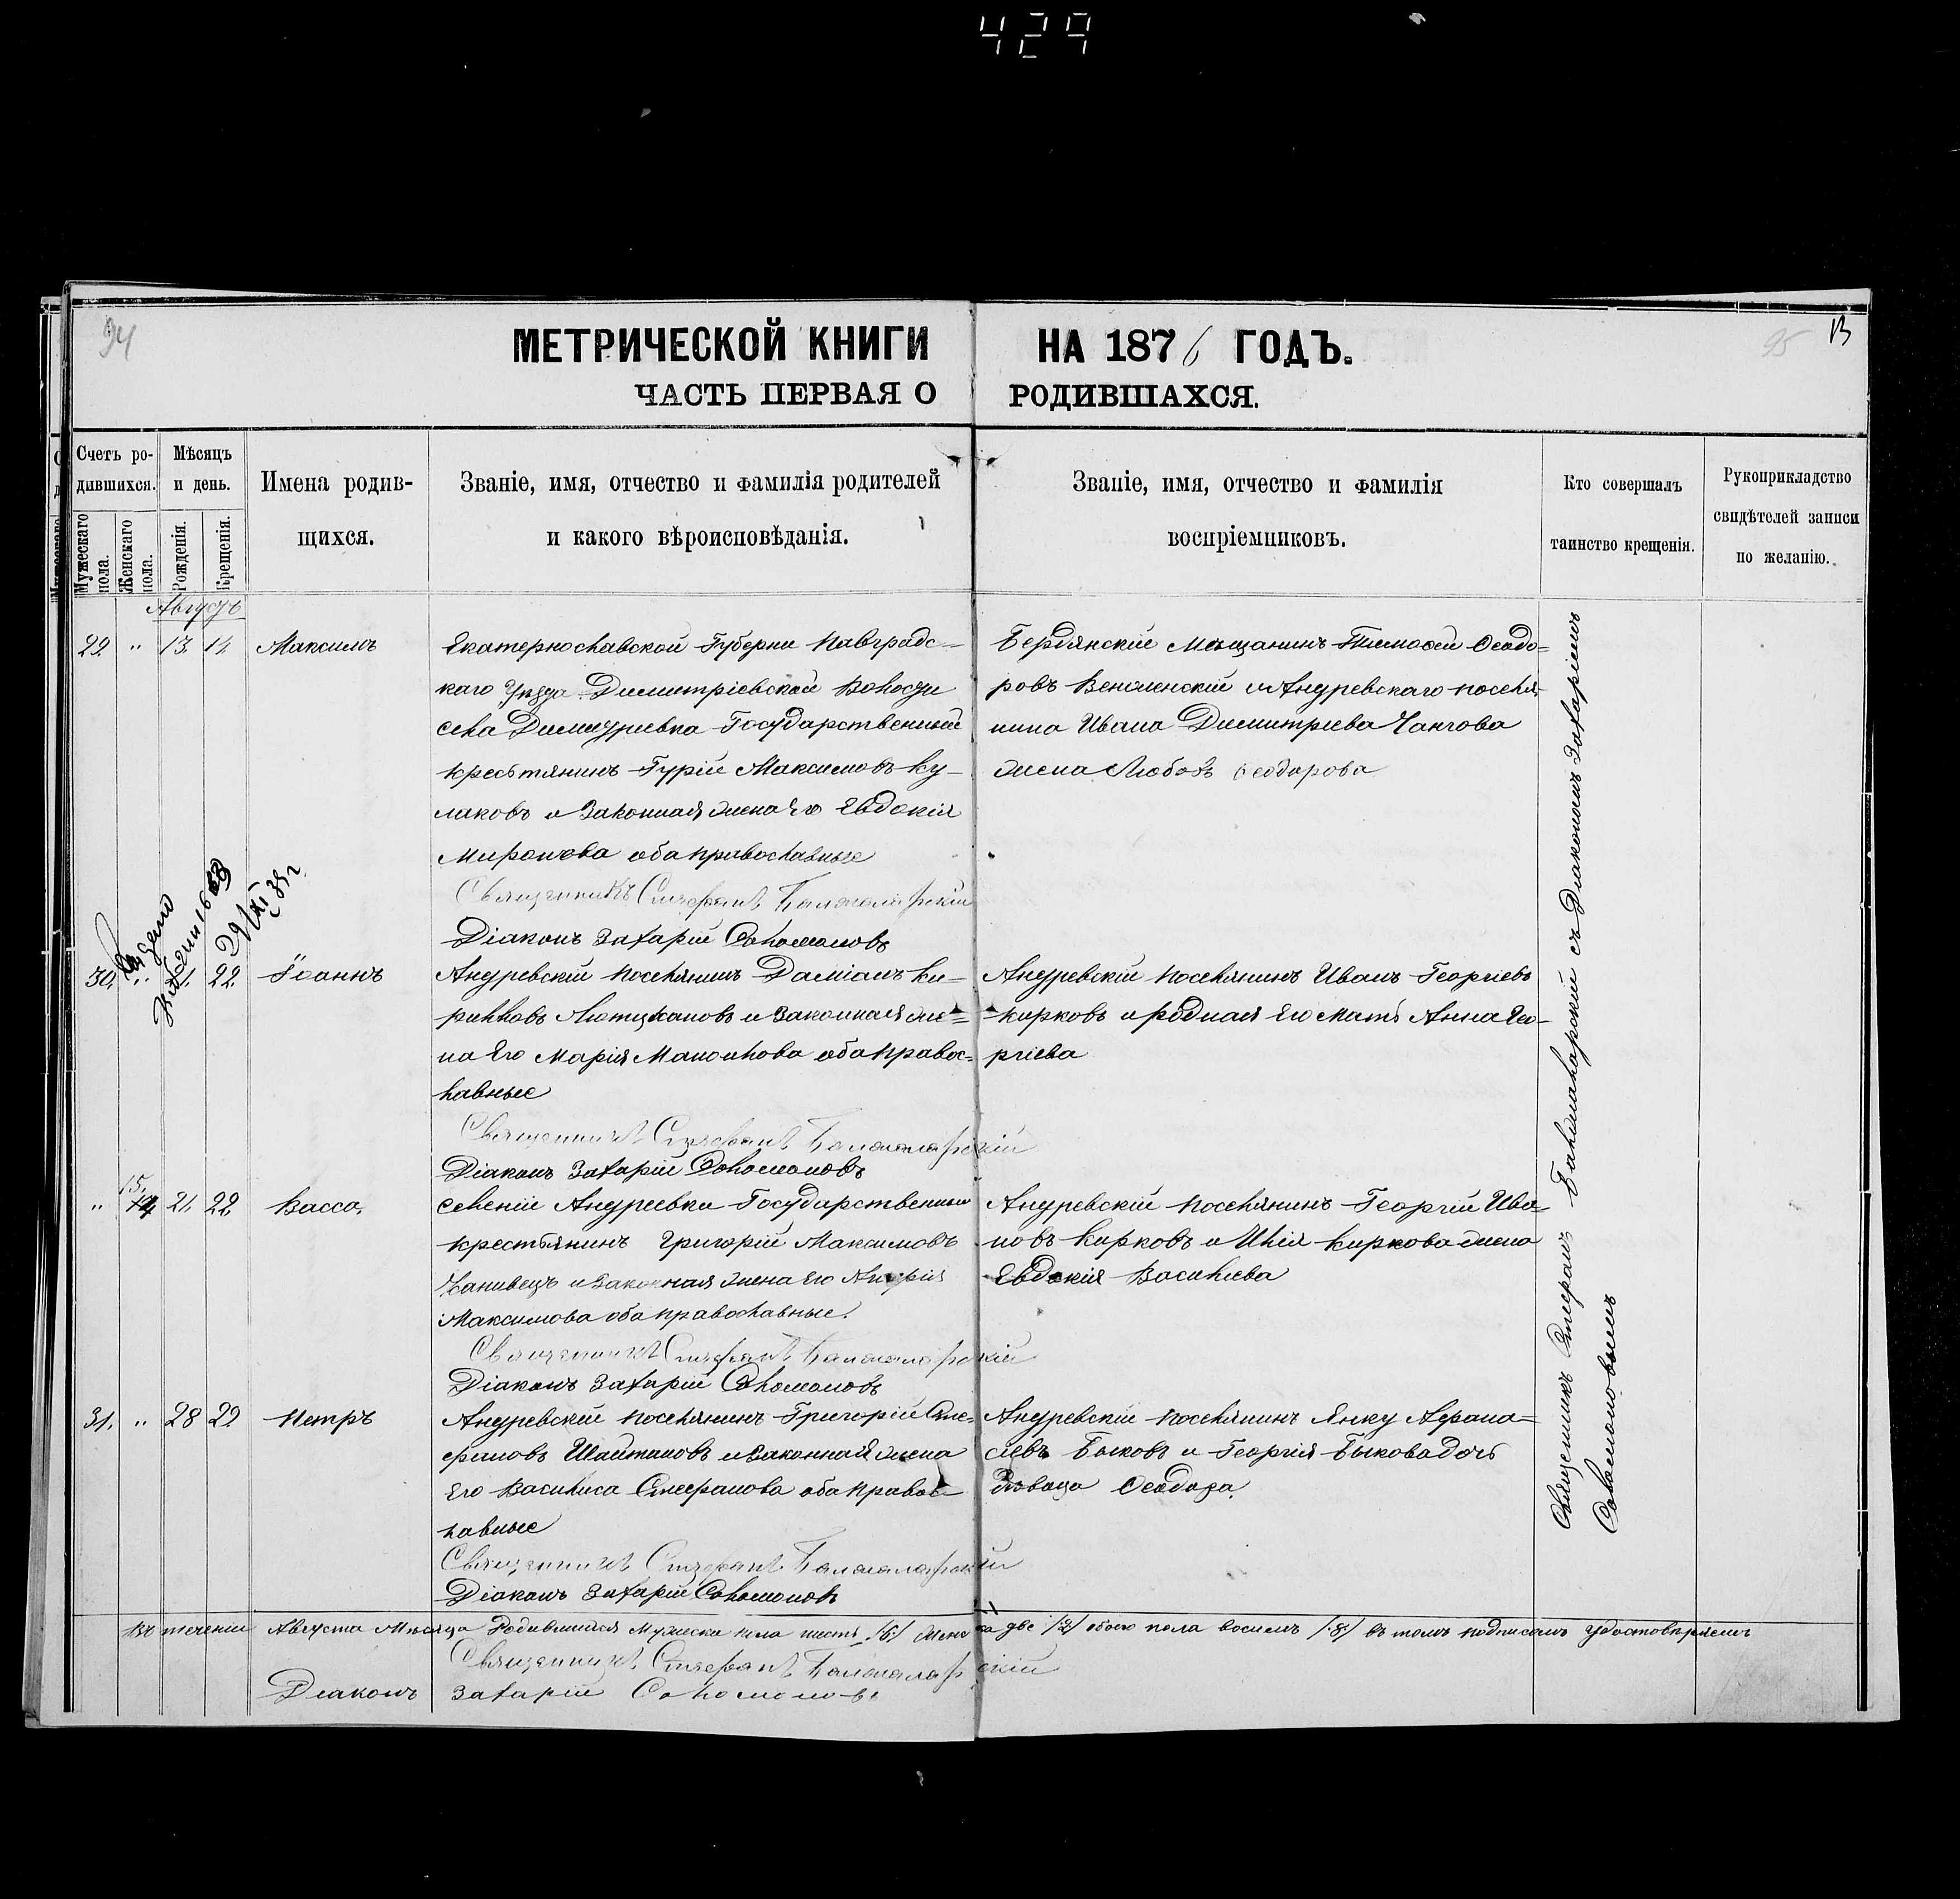 429
94
13
95
МЕТРИЧЕСКОЙ КНИГИ НА 1876 ГОДЪ.
ЧАСТЬ ПЕРВАЯ О РОДИВШАХСЯ.
Счетъ ро-
дившихся.
Мужескаго пола.
Женскаго пола.
Мѣсяцъ
и день.
Рожденія.
Крещенія.
Имена родив-
щихся.
Званіе, имя, отчество и фамилія родителей
и какого вѣроисповѣданія.
Званіе, имя, отчество и фамилія
воспріемниковъ.
Кто совершалъ
таинство крещенія.
Рукоприкладство
свидѣтелей записи
по желанію.
Августъ
29. " 13. 14. Максимъ
Екатернославской Губерни Павградс-
каго Уѣзда Димитріевской Волости
села Димитріевка Государственный
крестьянинъ Гурій Максимовъ Ку-
лаковъ и Законная жена Его Евдокія
Миронова оба православные
Священникъ Стефанъ
Діаконъ Захарій Соломоновъ
Бердянскій Мещанинъ Тимофей Феодо-
ровъ и Андревскаго поселя-
нина Ивана Димитриева
жена Любовь Феодорова
29/XI 38 г.
30. " 21. 22. Іоаннъ
Андревскій Поселянинъ Даміанъ Ки-
рилловъ и Законная же-
на Его Марія Манойлова оба правос-
лавные
Священникъ Стефанъ
Діаконъ Захарій Соломоновъ
Андревскій поселянинъ Иванъ Георгіевъ
Кирковъ и родная Его мать Анна Гео-
ргіева
" 15. 14 21. 22. Васса.
Селеніе Андреевки Государственный
крестьянинъ Григорій Максимовъ
и Законная жена Его
Максимова оба православные.
Священникъ Стефанъ
Діаконъ Захарій Соломоновъ
Андревскій поселянинъ Георгій Ива-
новъ Кирковъ и Илія Киркова жена
Евдокія Василіева
31. " 28 29 Петръ
Андревскій поселянинъ Григорій Сте-
фановъ Шайтановъ и Законная жена
Его Василиса Стефанова оба правос-
лавные
Священникъ Стефанъ
Діаконъ Захарій Соломоновъ
Андревскій поселянинъ Янку Афана-
сіевъ Быковъ и Георгія Быкова дочь
дѣвица
Священникъ Стефанъ съ Діакономъ Захаріемъ
Соломоновымъ
Въ теченіи Августа Мѣсяца Родившихся Мужеска пола шесть /6/ Женска две /2/ обоего пола восемь /8/ въ томъ подписомъ удостовѣряемъ
Священникъ Стефанъ
Діаконъ Захарій Соломоновъ